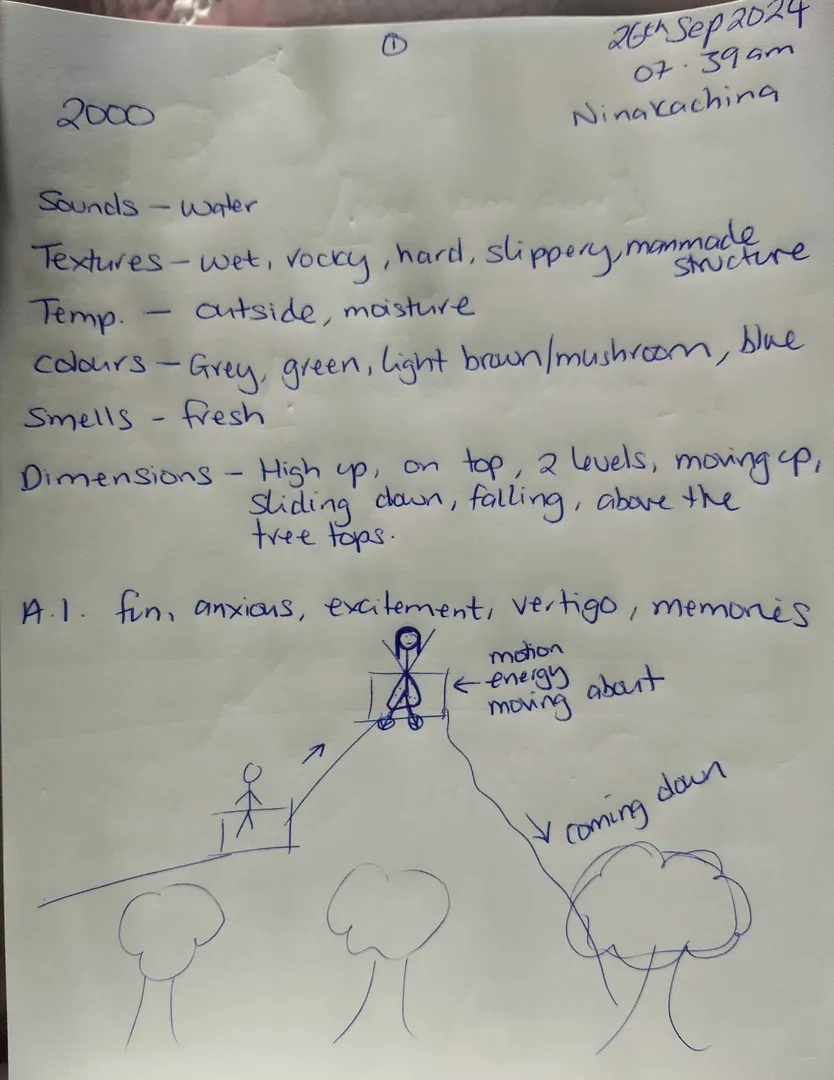 ①
26th Sep 2024
07.39am
Ninakachina
2000
Sounds – water
Textures – wet, rocky, hard, slippery, manmade
structure
Temp. – outside, moisture
Colours – Grey, green, light brown/mushroom, blue
Smells – fresh
Dimensions – High up, on top, 2 levels, moving up,
sliding down, falling, above the
tree tops.
A.I. fun, anxious, excitement, vertigo, memories
motion
← energy
moving about
coming down